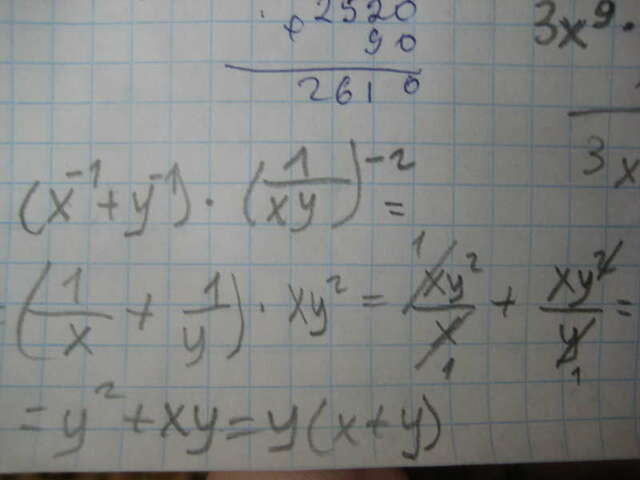 + 2520
90
2610
3x⁹·
3x
(x⁻¹+y⁻¹)·(1/xy)⁻²=
(1/x + 1/y)·xy² = xy²/x + xy²/y =
=y²+xy=y(x+y)